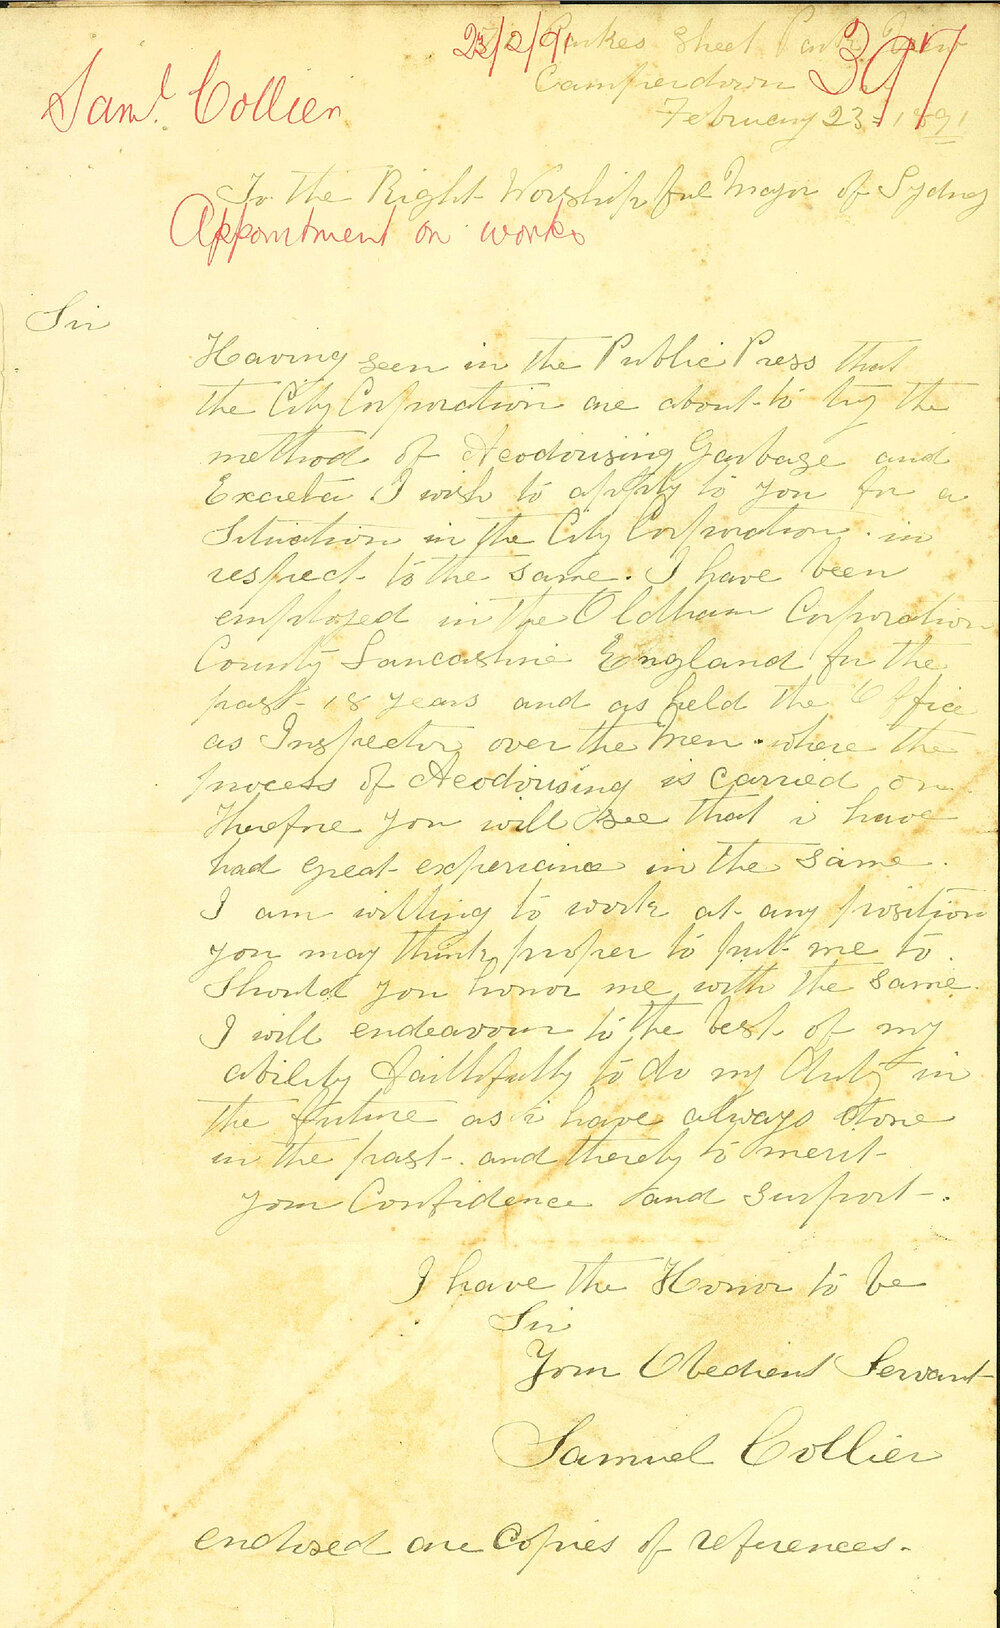 23/2/91
Parkes Street Park View
397
Saml. Collier
Camperdown
February 23= 1891
To the Right Worshipful Mayor of Sydney
Appointment on works
Sir
Having seen in the Public Press that
the City Corporation are about to try the
method of Deodorising Garbage and
Excreta I wish to apply to you for a
Situation in the City Corporation. in
respect to the same. I have been
employed in the Oldham Corporation
County Lancashire England for the
past 18 years and as held the Office
as Inspector over the Men. where the
process of Deodorising is carried on.
Therefore you will see that i have
had great experiance in the same.
I am willing to work at any position
you may think proper to put me to.
Should you honor me with the same.
I will endeavour to the best of my
ability faithfully to do my Duty in
the future as i have always done
in the past. and thereby to merit
your Confidence and support.
I have the Honor to be
Sir
Your Obedient Servant
Samuel Collier
enclosed are Copies of references.